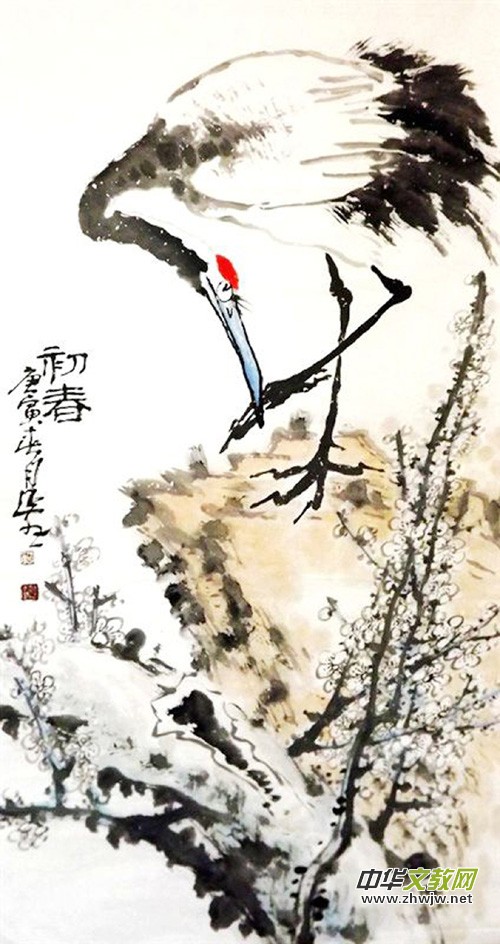 初春
庚寅春月
中华文教网
www.zhwjw.net